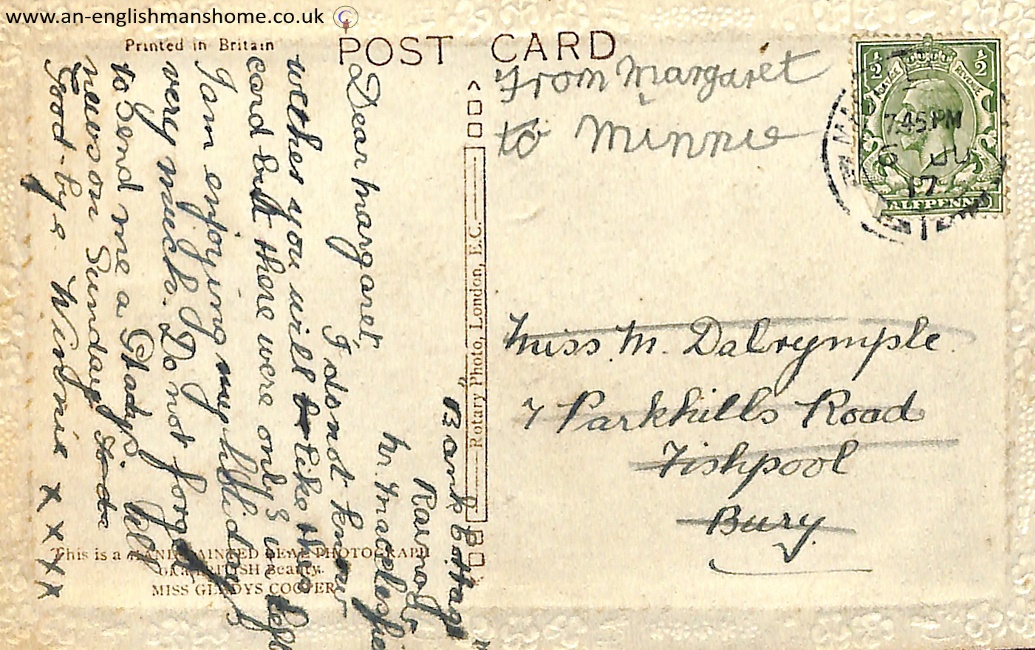 www.an-englishmanshome.co.uk
Printed in Britain
POST CARD
From Margaret
to Minnie
1/2 1/2
7.45 PM
6 JU
17
HALFPENNY
Miss. M. Dalrymple.
7 Parkhills Road
Fishpool
Bury.
Rotary Photo, London, E.C.
Bank Cottage
Rainow
Nr. Macclesfie
Dear Margaret,
I do not know
wether you will like this
card but there were only 3 left
I am enjoying my holiday
very much. Do not forget
to send me a Gladys
on Sunday
Good-bye Winnie x x x x
This is a HAND PAINTED REAL PHOTOGRAPH
OF A BRITISH Beauty.
MISS GLADYS COOPER